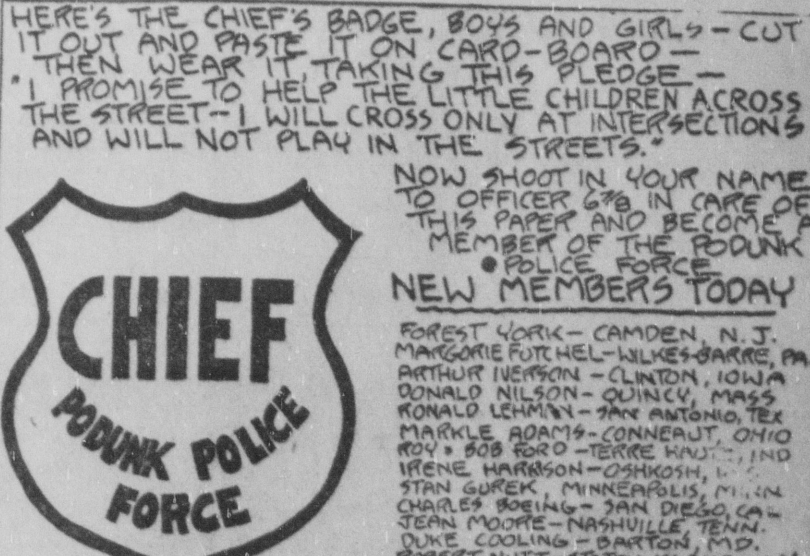 HERE'S THE CHIEF'S BADGE, BOYS AND GIRLS - CUT
IT OUT AND PASTE IT ON CARD-BOARD -
THEN WEAR IT, TAKING THIS PLEDGE -
"I PROMISE TO HELP THE LITTLE CHILDREN ACROSS
THE STREET - I WILL CROSS ONLY AT INTERSECTIONS
AND WILL NOT PLAY IN THE STREETS."
CHIEF
PODUNK POLICE
FORCE
NOW SHOOT IN YOUR NAME
TO OFFICER 6 7/8 IN CARE OF
THIS PAPER AND BECOME A
MEMBER OF THE PODUNK
POLICE FORCE
NEW MEMBERS TODAY
FOREST YORK - CAMDEN, N.J.
MARGORIE FUTCHEL - WILKES-BARRE, PA
ARTHUR IVERSON - CLINTON, IOWA
DONALD NILSON - QUINCY, MASS
RONALD LEHMAN - SAN ANTONIO, TEX
MARKLE ADAMS - CONNEAUT, OHIO
ROY & BOB FORD - TERRE HAUTE, IND
IRENE HARRISON - OSHKOSH,
STAN GUREK, MINNEAPOLIS, MINN
CHARLES BOEING - SAN DIEGO, CAL
JEAN MOORE - NASHVILLE, TENN.
DUKE COOLING - BARTON, MD.